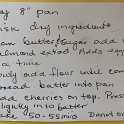 ay 8" pan
isk dry ingredients
am butter & sugar add v
almond extract Add eggs
a time
wly add flour until com
pread batter into pan
add cherries on top. Press
lightly into batter
ake 50-55 min Do not o